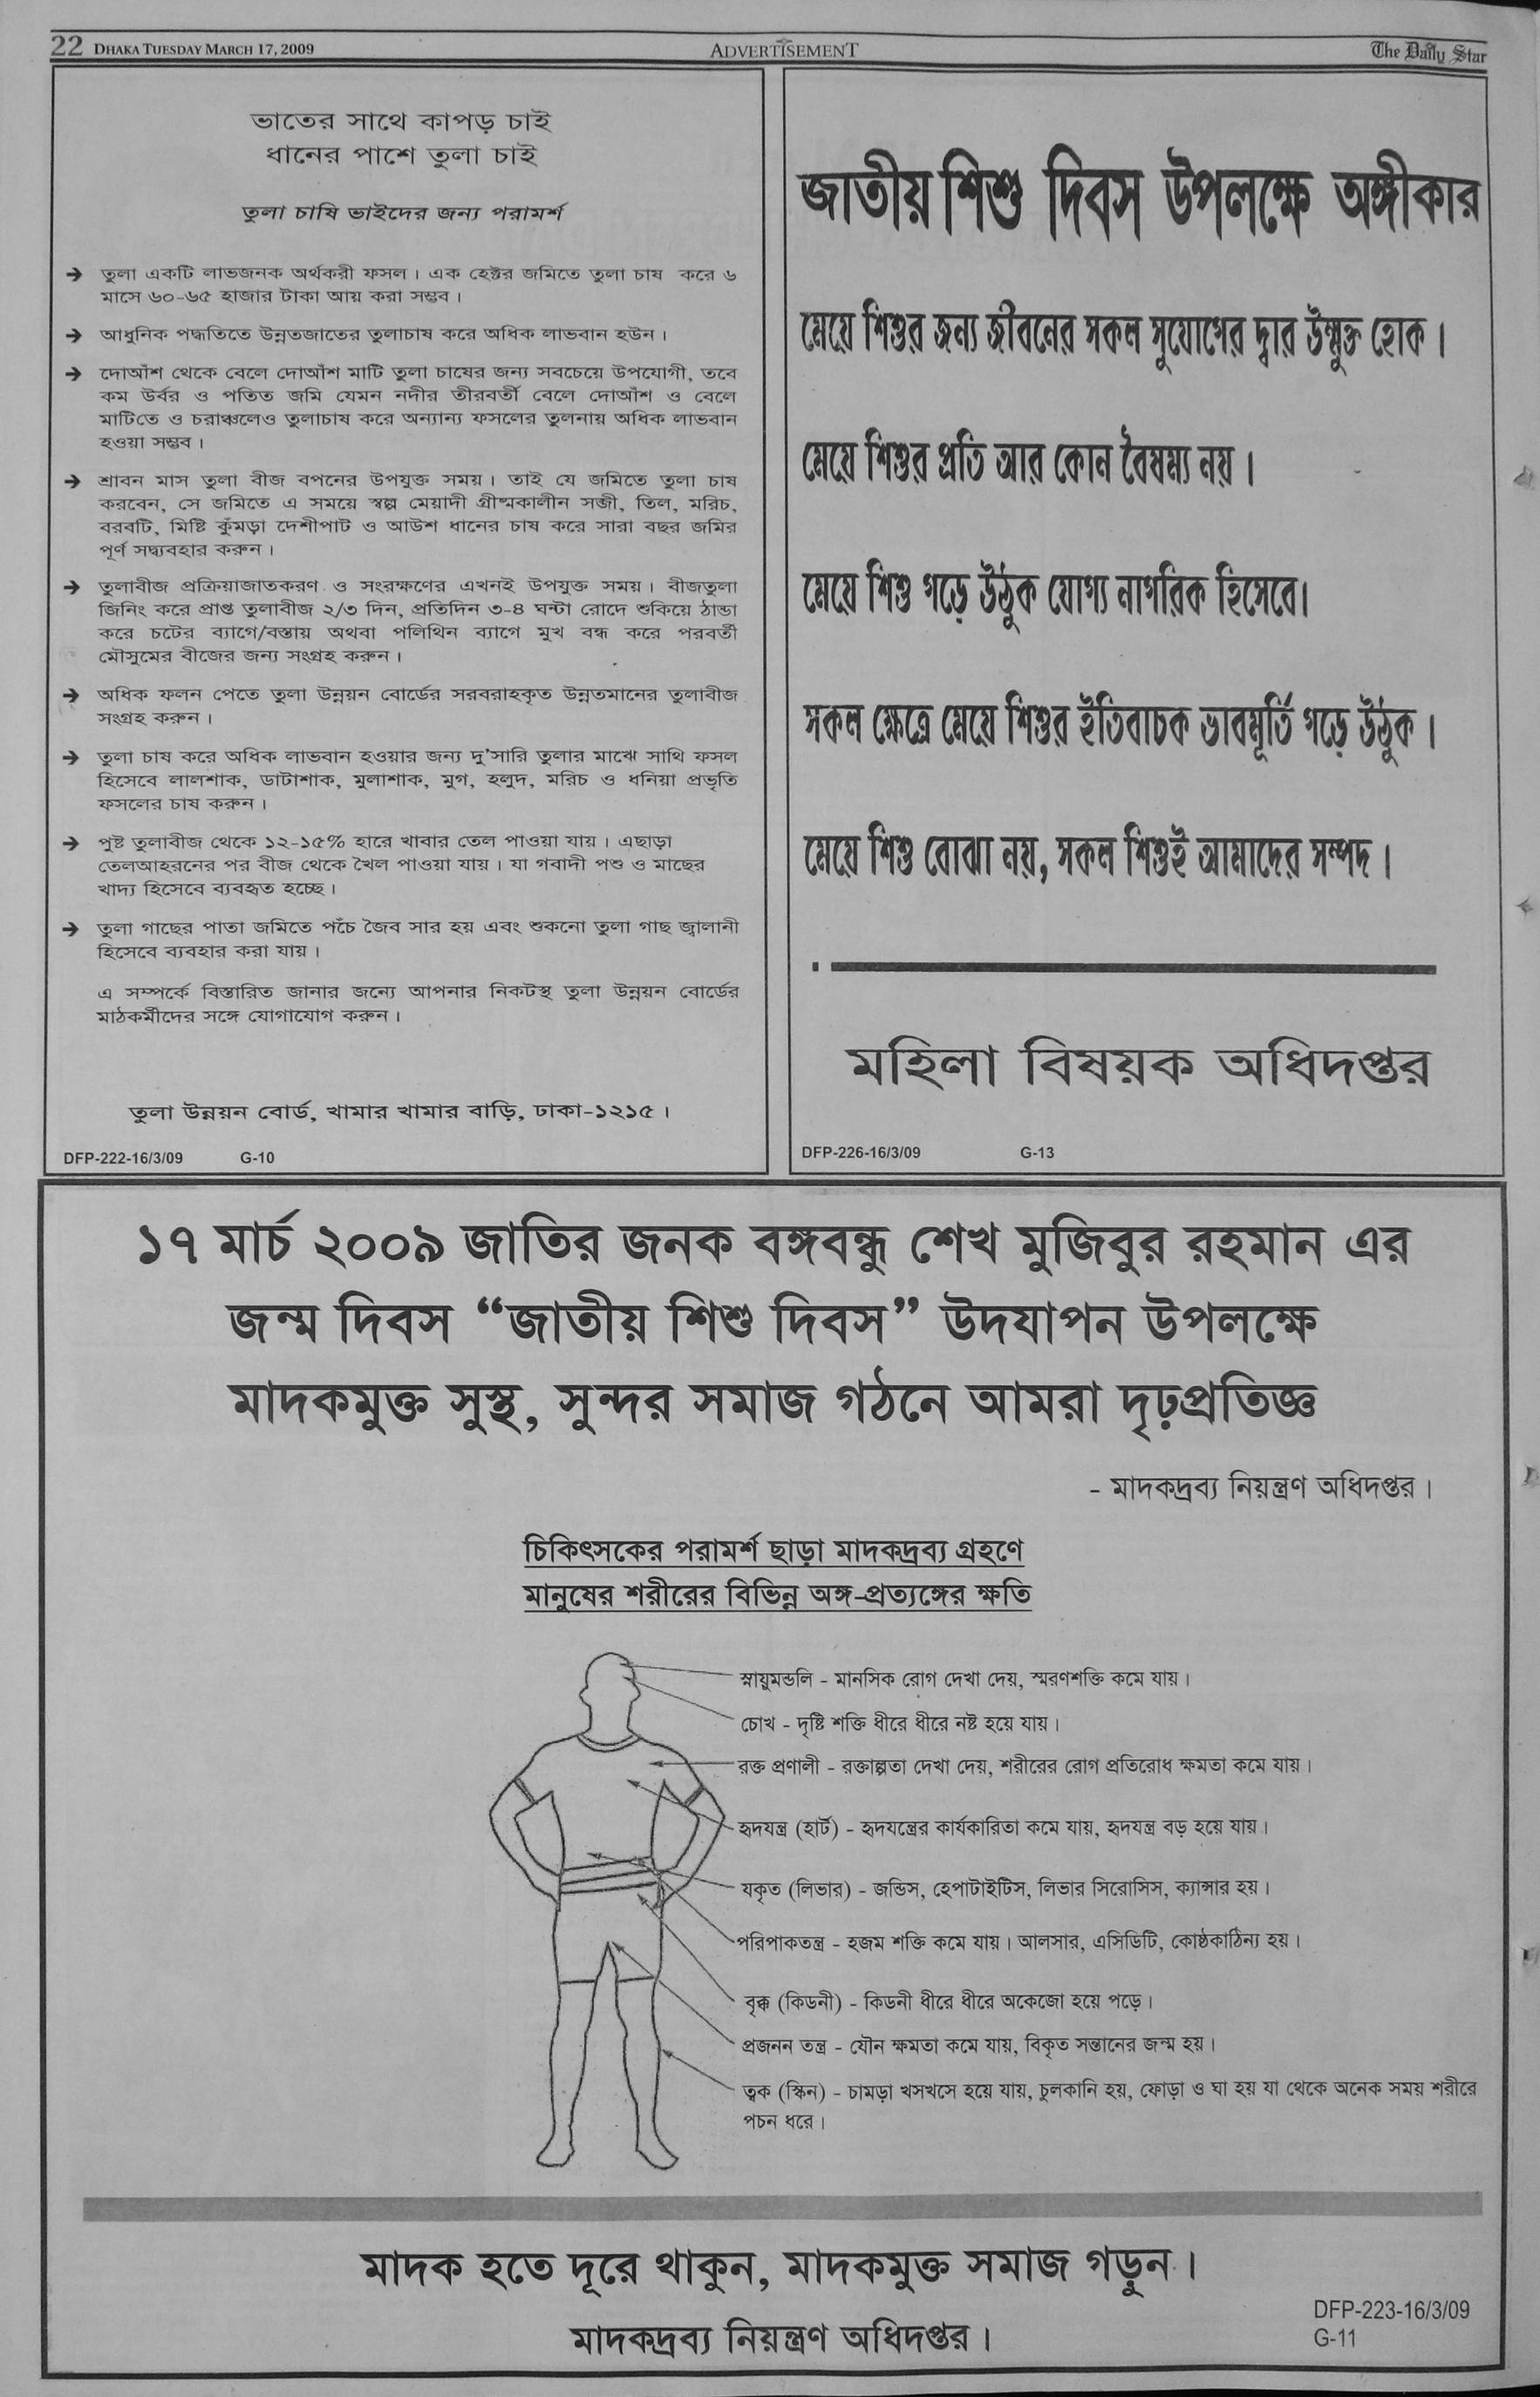 22 DHAKA TUESDAY MARCH 17, 2009
ADVERTISEMENT
The Daily Star
ভাতের সাথে কাপড় চাই
ধানের পাশে তুলা চাই
তুলা চাষি ভাইদের জন্য পরামর্শ
→ তুলা একটি লাভজনক অর্থকরী ফসল। এক হেক্টর জমিতে তুলা চাষ করে ৬
মাসে ৬০-৬৫ হাজার টাকা আয় করা সম্ভব।
→ আধুনিক পদ্ধতিতে উন্নতজাতের তুলাচাষ করে অধিক লাভবান হউন।
→ দোআঁশ থেকে বেলে দোআঁশ মাটি তুলা চাষের জন্য সবচেয়ে উপযোগী, তবে
কম উর্বর ও পতিত জমি যেমন নদীর তীরবর্তী বেলে দোআঁশ ও বেলে
মাটিতে ও চরাঞ্চলেও তুলাচাষ করে অন্যান্য ফসলের তুলনায় অধিক লাভবান
হওয়া সম্ভব।
→ শ্রাবন মাস তুলা বীজ বপনের উপযুক্ত সময়। তাই যে জমিতে তুলা চাষ
করবেন, সে জমিতে এ সময়ে স্বল্প মেয়াদী গ্রীষ্মকালীন সব্জী, তিল, মরিচ,
বরবটি, মিষ্টি কুঁমড়া দেশীপাট ও আউশ ধানের চাষ করে সারা বছর জমির
পূর্ণ সদ্ব্যবহার করুন।
→ তুলাবীজ প্রক্রিয়াজাতকরণ ও সংরক্ষণের এখনই উপযুক্ত সময়। বীজতুলা
জিনিং করে প্রাপ্ত তুলাবীজ ২/৩ দিন, প্রতিদিন ৩-৪ ঘন্টা রোদে শুকিয়ে ঠান্ডা
করে চটের ব্যাগে/বস্তায় অথবা পলিথিন ব্যাগে মুখ বন্ধ করে পরবর্তী
মৌসুমের বীজের জন্য সংগ্রহ করুন।
→ অধিক ফলন পেতে তুলা উন্নয়ন বোর্ডের সরবরাহকৃত উন্নতমানের তুলাবীজ
সংগ্রহ করুন।
→ তুলা চাষ করে অধিক লাভবান হওয়ার জন্য দু'সারি তুলার মাঝে সাথি ফসল
হিসেবে লালশাক, ডাটাশাক, মুলাশাক, মুগ, হলুদ, মরিচ ও ধনিয়া প্রভৃতি
ফসলের চাষ করুন।
→ পুষ্ট তুলাবীজ থেকে ১২-১৫% হারে খাবার তেল পাওয়া যায়। এছাড়া
তেলআহরনের পর বীজ থেকে খৈল পাওয়া যায়। যা গবাদী পশু ও মাছের
খাদ্য হিসেবে ব্যবহৃত হচ্ছে।
→ তুলা গাছের পাতা জমিতে পঁচে জৈব সার হয় এবং শুকনো তুলা গাছ জ্বালানী
হিসেবে ব্যবহার করা যায়।
এ সম্পর্কে বিস্তারিত জানার জন্যে আপনার নিকটস্থ তুলা উন্নয়ন বোর্ডের
মাঠকর্মীদের সঙ্গে যোগাযোগ করুন।
তুলা উন্নয়ন বোর্ড, খামার খামার বাড়ি, ঢাকা-১২১৫।
DFP-222-16/3/09 G-10
জাতীয় শিশু দিবস উপলক্ষে অঙ্গীকার
মেয়ে শিশুর জন্য জীবনের সকল সুযোগের দ্বার উন্মুক্ত হোক।
মেয়ে শিশুর প্রতি আর কোন বৈষম্য নয়।
মেয়ে শিশু গড়ে উঠুক যোগ্য নাগরিক হিসেবে।
সকল ক্ষেত্রে মেয়ে শিশুর ইতিবাচক ভাবমূর্তি গড়ে উঠুক।
মেয়ে শিশু বোঝা নয়, সকল শিশুই আমাদের সম্পদ।
মহিলা বিষয়ক অধিদপ্তর
DFP-226-16/3/09 G-13
১৭ মার্চ ২০০৯ জাতির জনক বঙ্গবন্ধু শেখ মুজিবুর রহমান এর
জন্ম দিবস “জাতীয় শিশু দিবস” উদযাপন উপলক্ষে
মাদকমুক্ত সুস্থ, সুন্দর সমাজ গঠনে আমরা দৃঢ়প্রতিজ্ঞ
- মাদকদ্রব্য নিয়ন্ত্রণ অধিদপ্তর।
চিকিৎসকের পরামর্শ ছাড়া মাদকদ্রব্য গ্রহণে
মানুষের শরীরের বিভিন্ন অঙ্গ-প্রত্যঙ্গের ক্ষতি
স্নায়ুমন্ডলি - মানসিক রোগ দেখা দেয়, স্মরণশক্তি কমে যায়।
চোখ - দৃষ্টি শক্তি ধীরে ধীরে নষ্ট হয়ে যায়।
রক্ত প্রণালী - রক্তাল্পতা দেখা দেয়, শরীরের রোগ প্রতিরোধ ক্ষমতা কমে যায়।
হৃদযন্ত্র (হার্ট) - হৃদযন্ত্রের কার্যকারিতা কমে যায়, হৃদযন্ত্র বড় হয়ে যায়।
যকৃত (লিভার) - জন্ডিস, হেপাটাইটিস, লিভার সিরোসিস, ক্যান্সার হয়।
পরিপাকতন্ত্র - হজম শক্তি কমে যায়। আলসার, এসিডিটি, কোষ্ঠকাঠিন্য হয়।
বৃক্ক (কিডনী) - কিডনী ধীরে ধীরে অকেজো হয়ে পড়ে।
প্রজনন তন্ত্র - যৌন ক্ষমতা কমে যায়, বিকৃত সন্তানের জন্ম হয়।
ত্বক (স্কিন) - চামড়া খসখসে হয়ে যায়, চুলকানি হয়, ফোড়া ও ঘা হয় যা থেকে অনেক সময় শরীরে
পচন ধরে।
মাদক হতে দূরে থাকুন, মাদকমুক্ত সমাজ গড়ুন।
মাদকদ্রব্য নিয়ন্ত্রণ অধিদপ্তর।
DFP-223-16/3/09
G-11